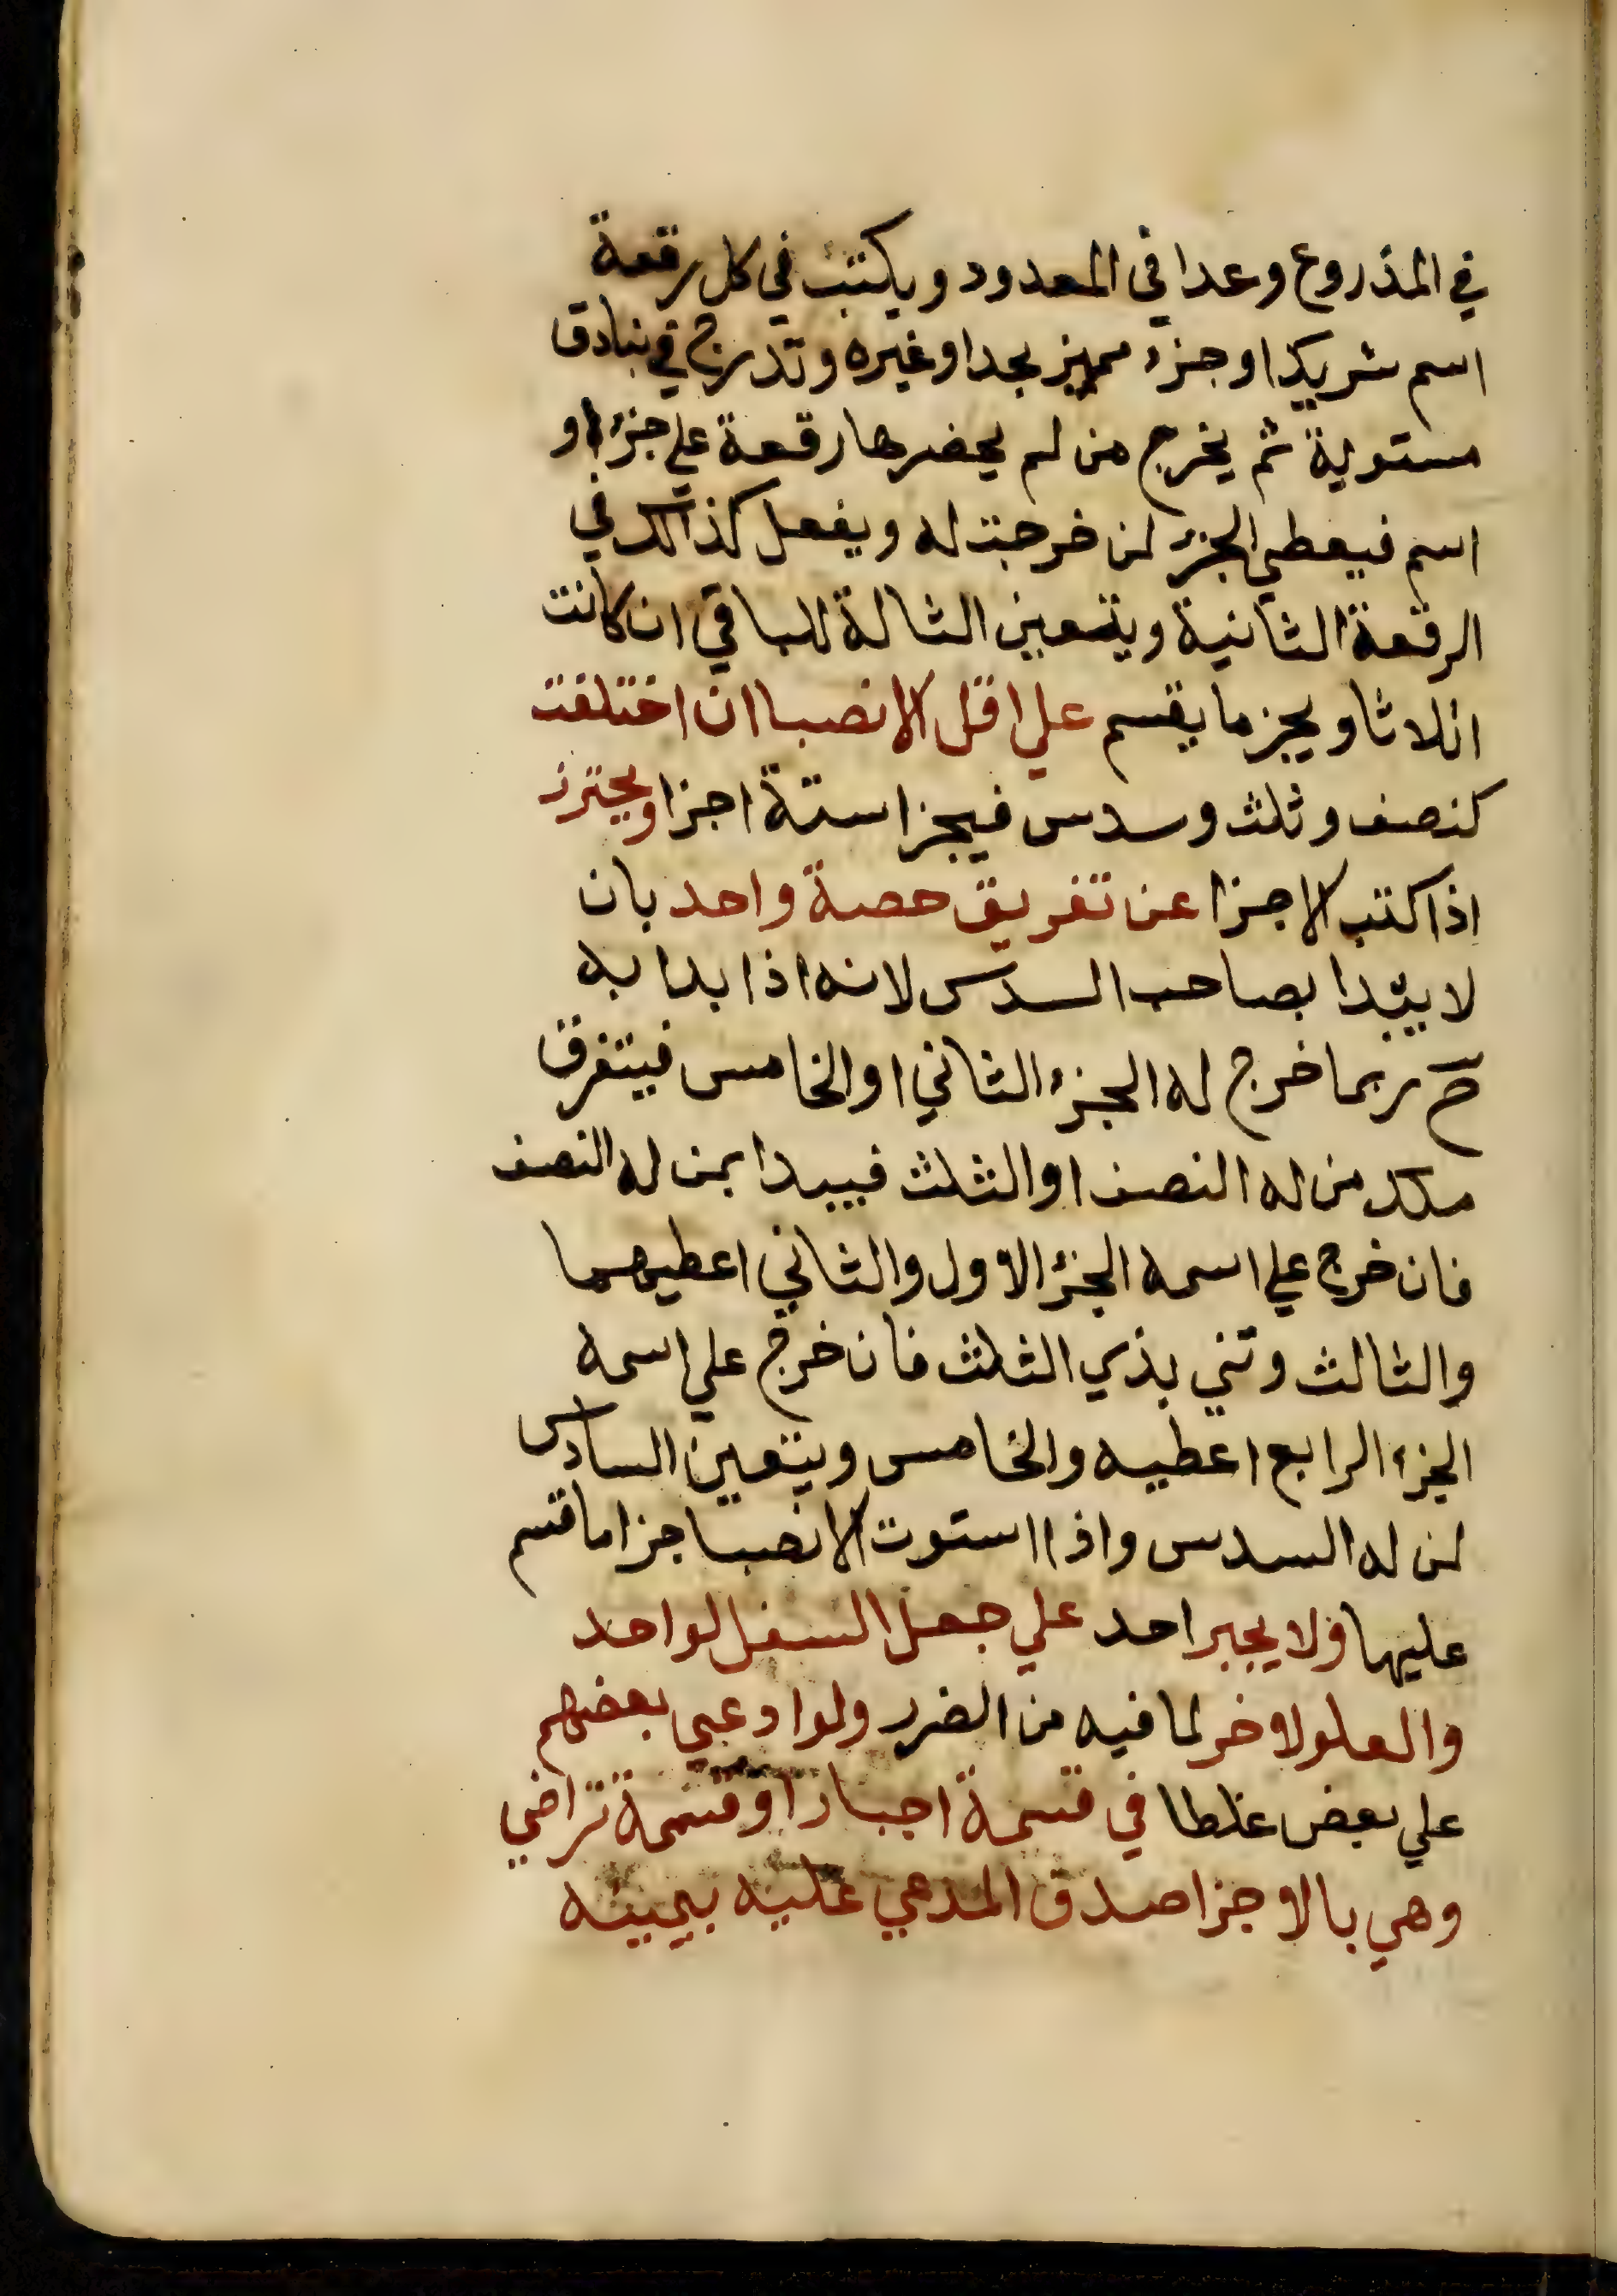 في المذروع وعدا في المعدود ويكتب في كل رقعة
اسم شريك او جزء مميز بحد او غيره وتدرج في بنادق
مستوية ثم يخرج من لم يحضرها رقعة علي جزء او
اسم فيعطي الجزء لمن خرجت له ويفعل كذالك في
الرقعة الثانية ويتعين الثالة للباقي ان كانت
اثلاثا ويجز ما يقسم علي اقل الانصبا ان اختلفت
كنصف وثلث وسدس فيجزا ستة اجزا ويحترز
اذا كتب الاجزا عن تفريق حصة واحد بان
لا يبدا بصاحب السدس لانه اذا بدا به
ح ربما خرج له الجزء الثاني او الخامس فيتفرق
ملك من له النصف او الثلث فيبدا بمن له النصف
فان خرج علي اسمه الجزء الاول والثاني اعطيهما
والثالث وتني بذي الثلث فان خرج علي اسمه
الجزء الرابع اعطيه والخامس ويتعين السادس
لمن له السدس واذا استوت الانصبا جزا ما قسم
عليها ولا يجبر احد علي جعل السفل لواحد
والعلو لاخر لما فيه من الضرر ولو ادعي بعضهم
علي بعض غلطا في قسمة اجبار او قسمة تراضي
وهي بالاجزا صدق المدعي عليه بيمينه